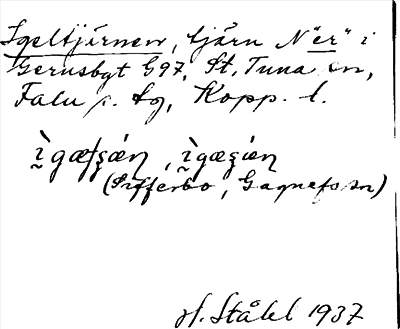 Igeltjärnen, tjärn N "er" i
Gerusbyt G97, St. Tuna sn,
Falu s. tg, Kopp. l.
(Sifferbo, Gagnefs sn)
H. Ståhl 1937